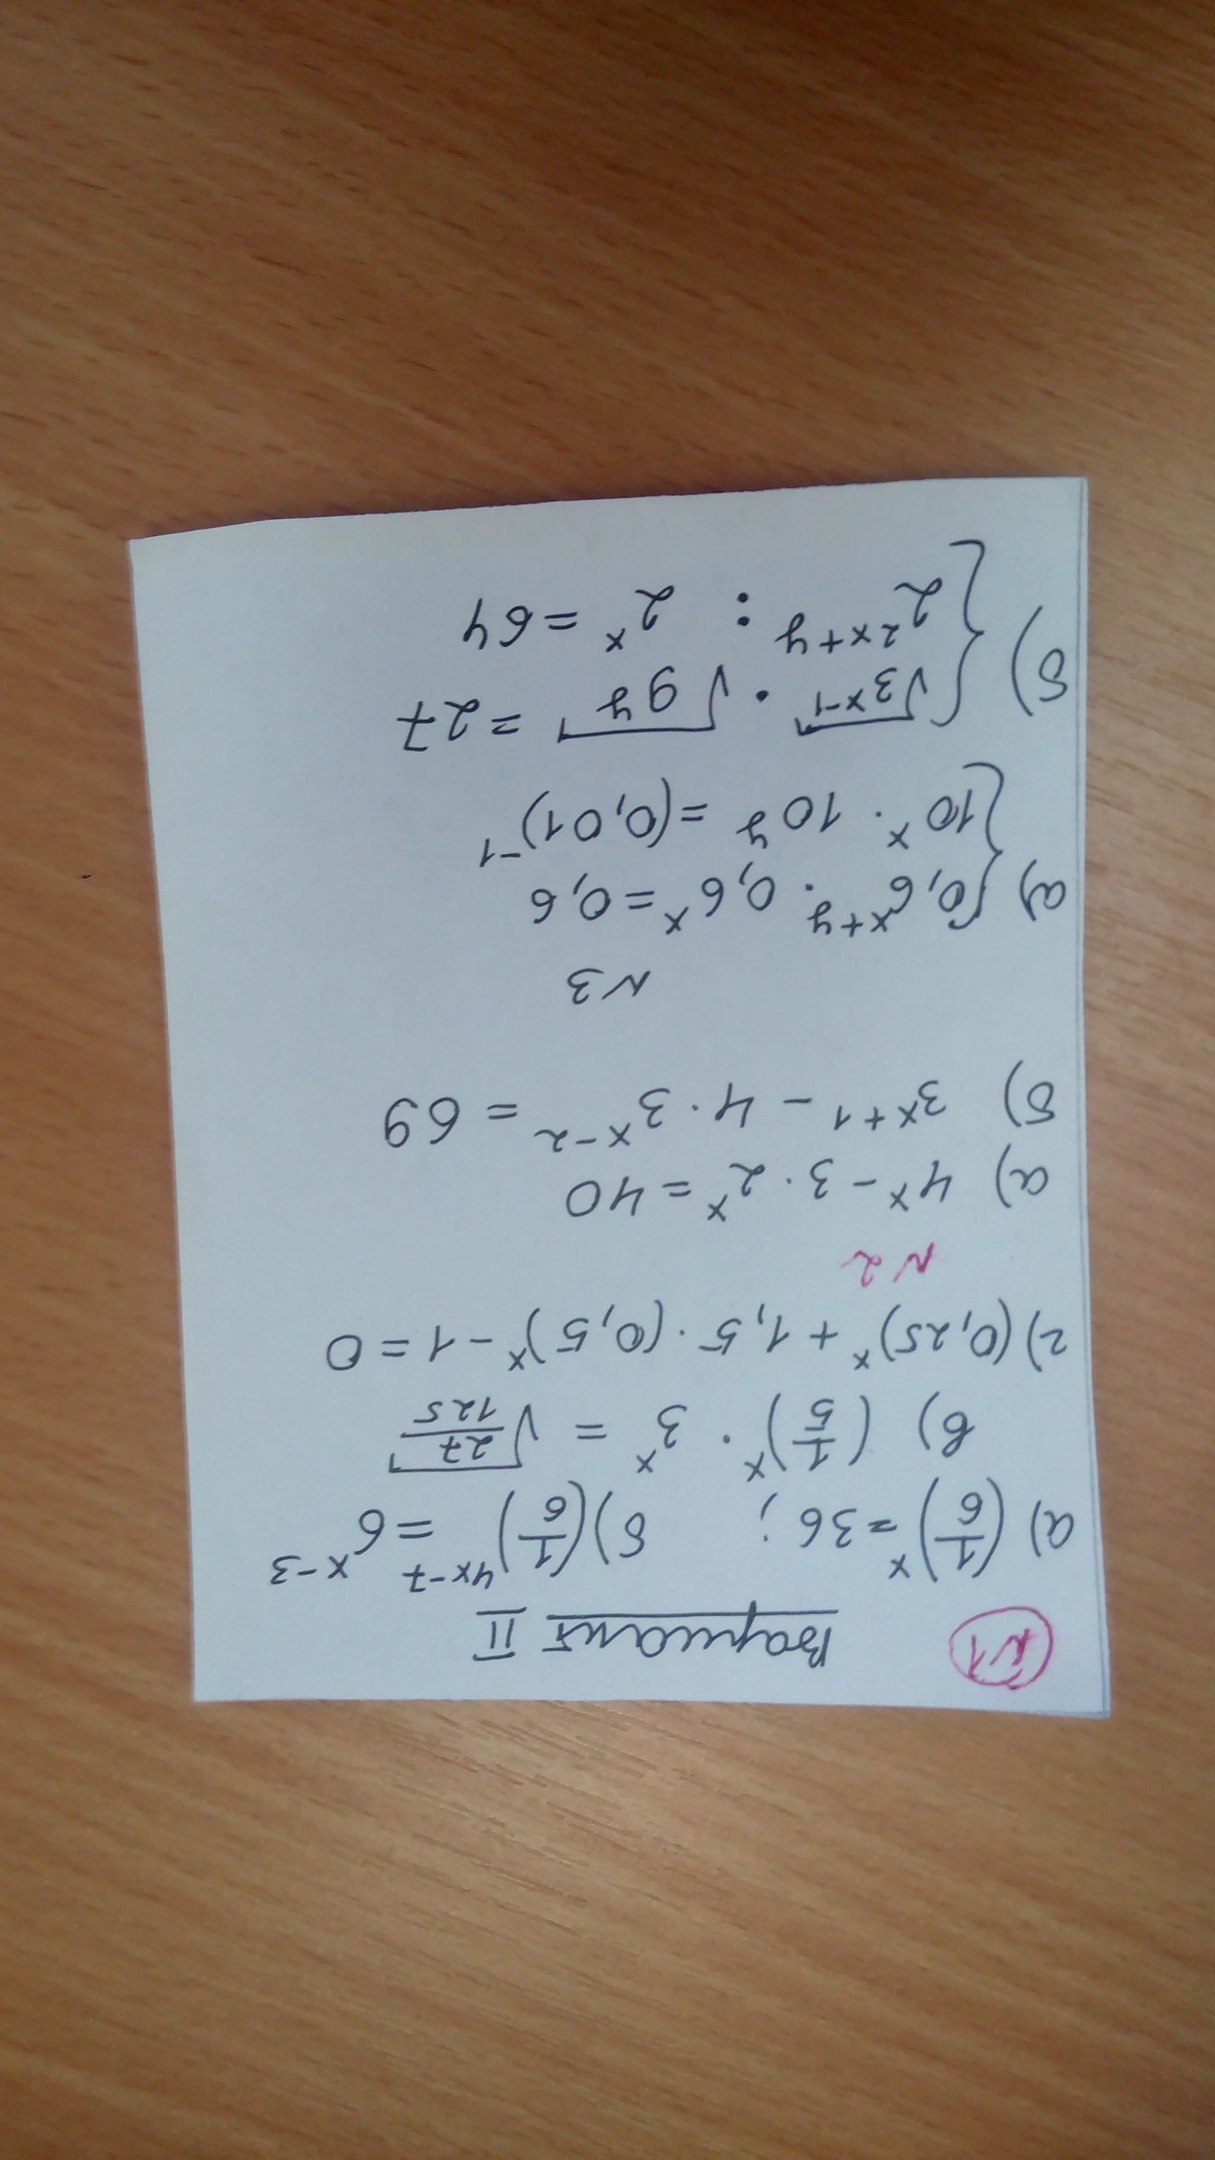 №1 Вариант II
а) (1/6)^x = 36; б) (1/6)^(4x-7) = 6^(x-3)
в) (1/5)^x · 3^x = √(27/125)
г) (0,25)^x + 1,5 · (0,5)^x - 1 = 0
№2
а) 4^x - 3 · 2^x = 40
б) 3^(x+1) - 4 · 3^(x-2) = 69
№3
а) { 0,6^(x+y) · 0,6^x = 0,6
10^x · 10^y = (0,01)^(-1)
б) { √(3^(x-1)) · √(9^y) = 27
2^(2x+y) : 2^x = 64